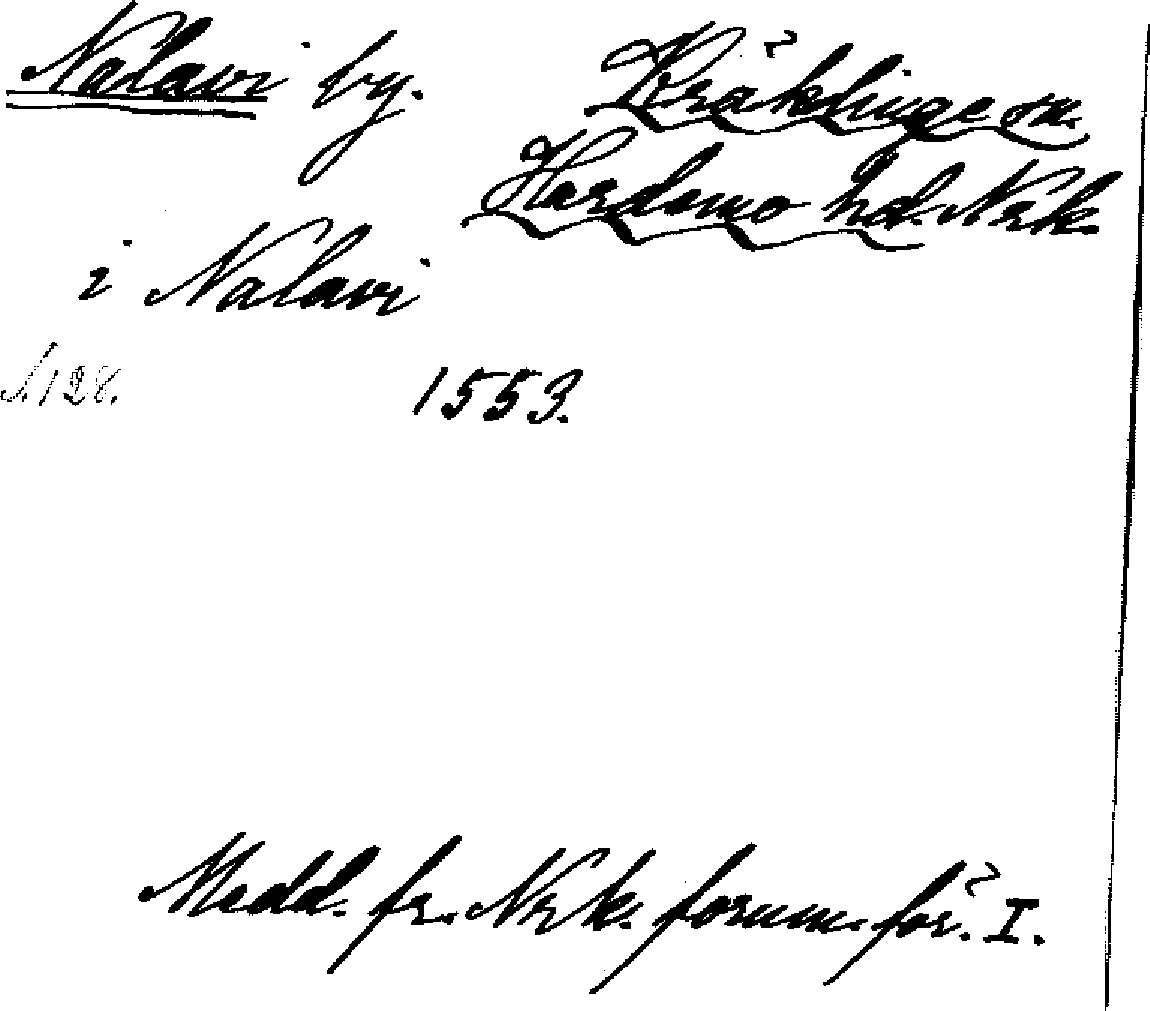 Nalavi by. Kräklinge sn.
Hardemo hd. Nrk.
i Nalavi
s. 128. 1553.
Medd. fr. Nrk. fornm. för. I.